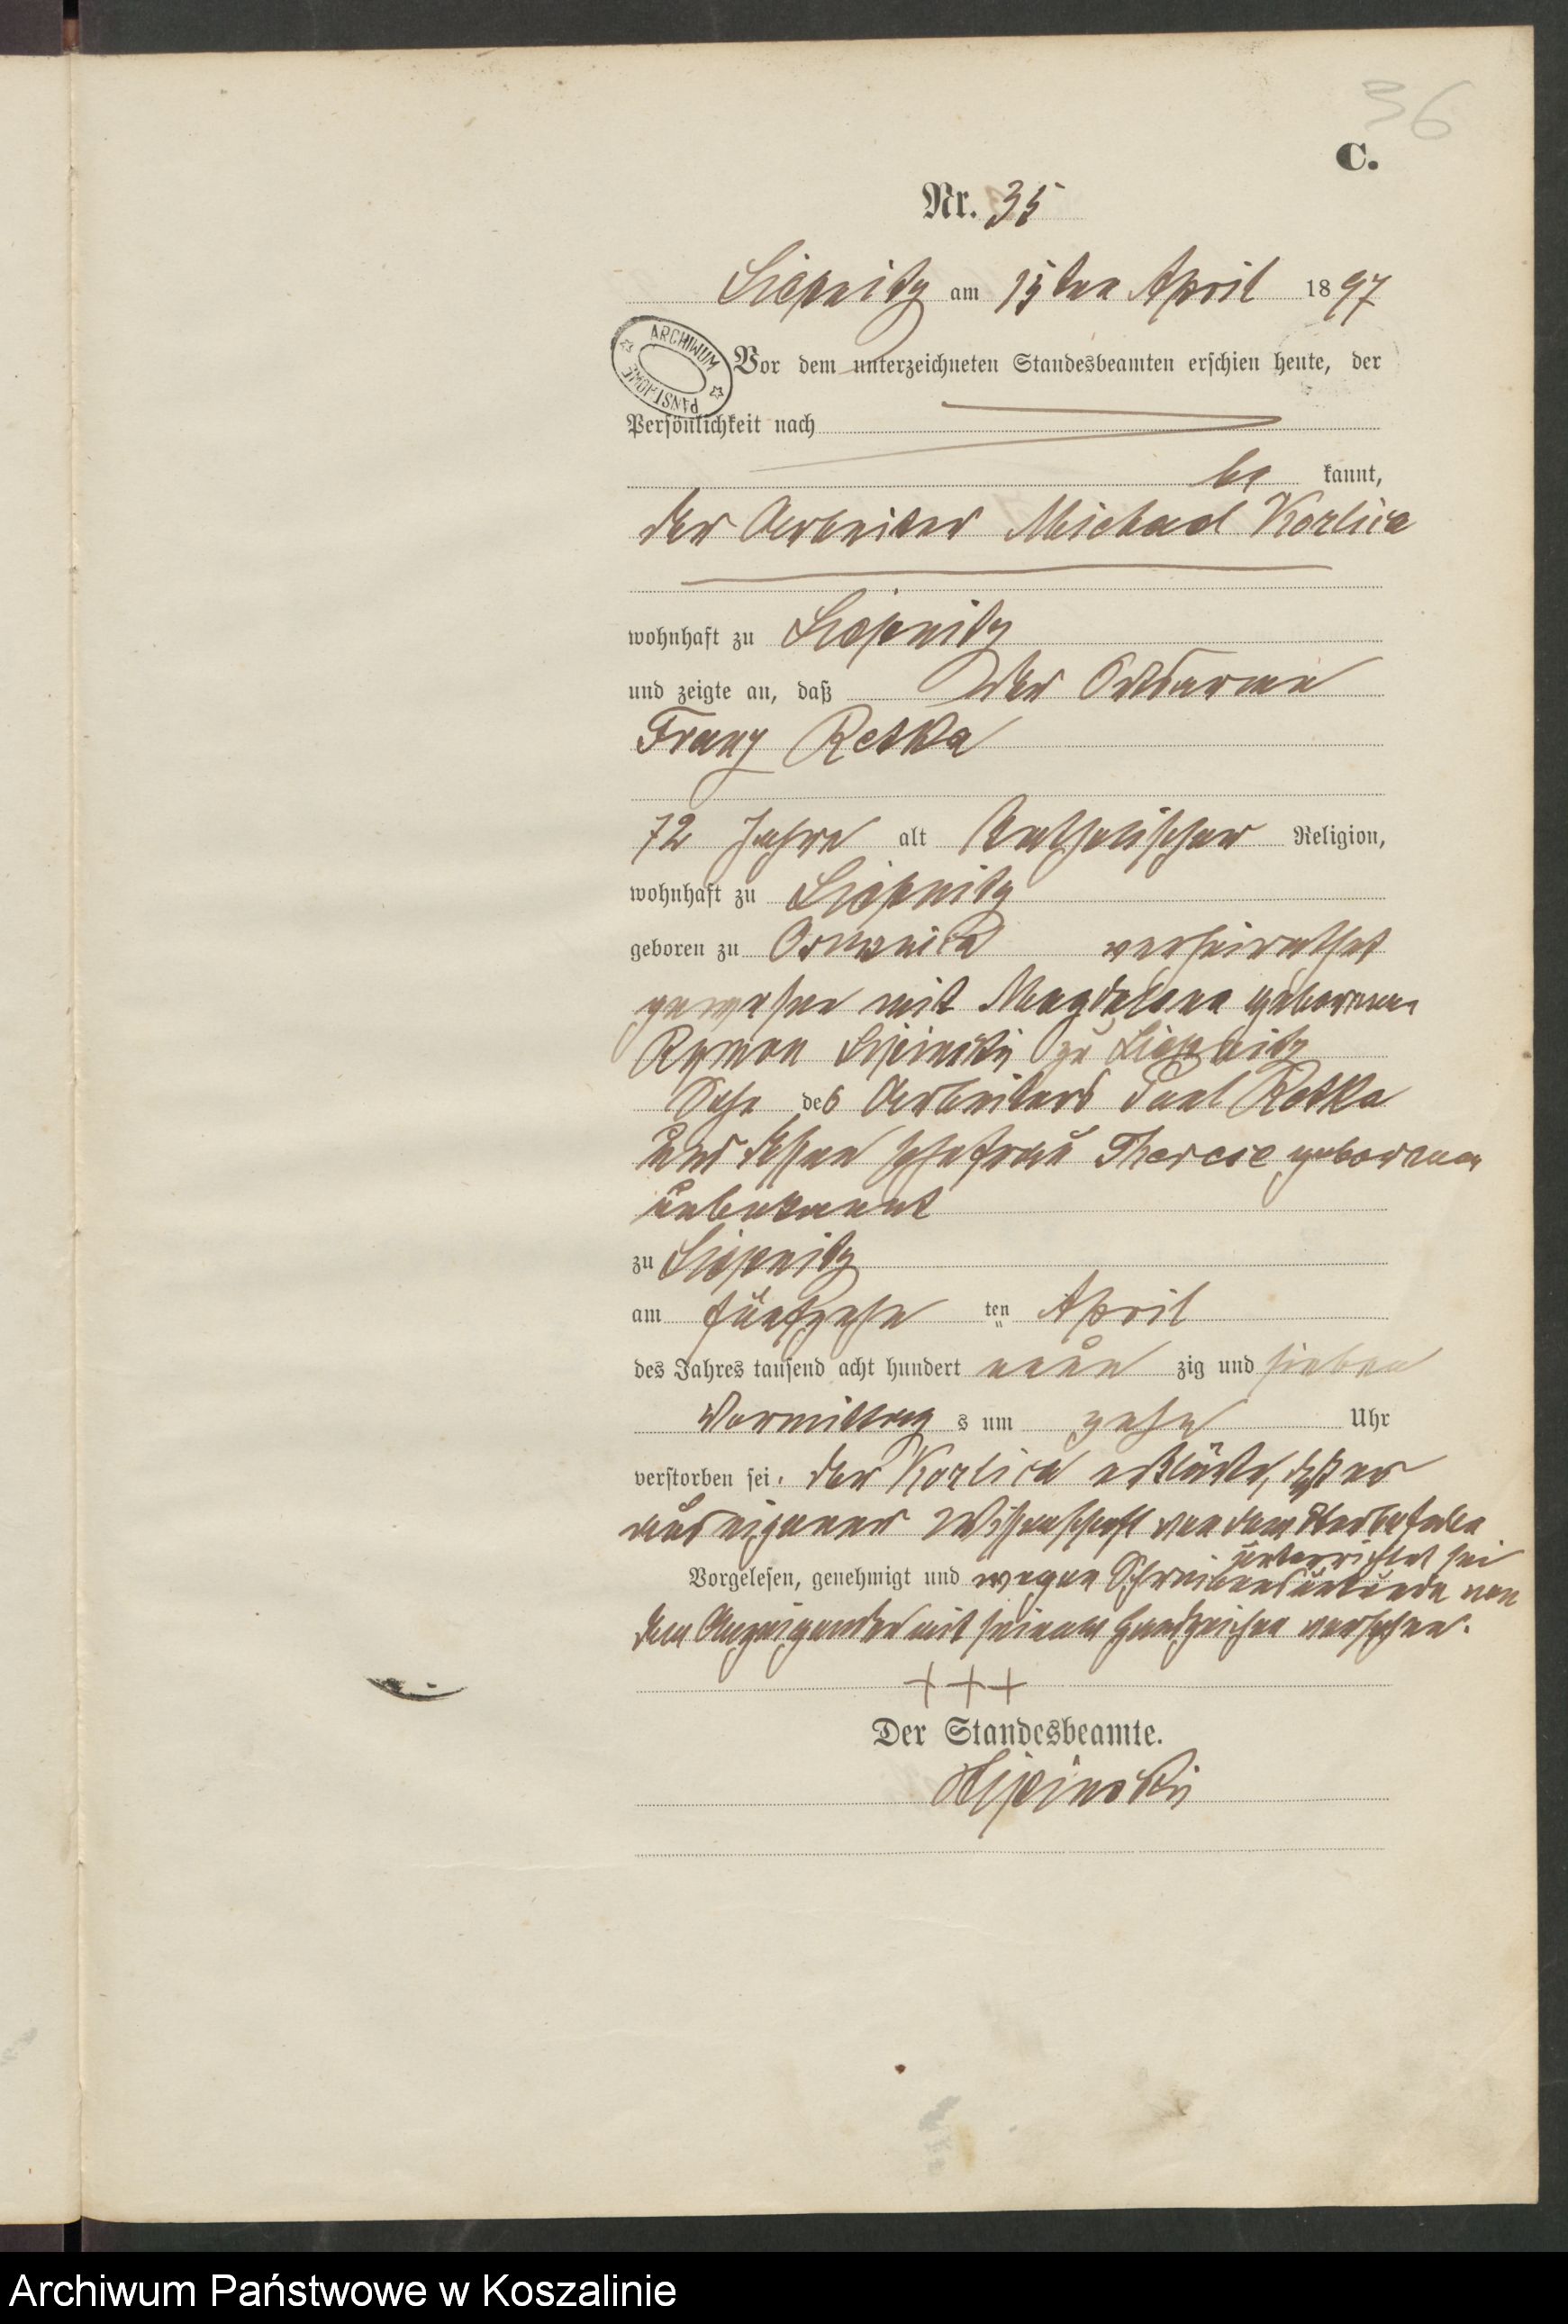 36
C.
Nr. 35
Liepnitz am 15ten April 1897
ARCHIWUM PAŃSTWOWE
Vor dem unterzeichneten Standesbeamten erschien heute, der
Persönlichkeit nach
be kannt,
der Arbeiter Michael Kozlica
wohnhaft zu Liepnitz
und zeigte an, daß der Ortsarme
Franz Retka
72 Jahre alt katholischer Religion,
wohnhaft zu Liepnitz
geboren zu verheirathet
gewesen mit Magdalena geborenen
zu Liepnitz
Sohn des Arbeiters Paul Retka
und dessen Ehefrau Therese geborenen
unbekannt
zu Liepnitz
am fünfzehn ten April
des Jahres tausend acht hundert neun zig und sieben
Vormittag s um zehn Uhr
verstorben sei. der Kozlica erklärte, daß er
aus eigener Wissenschaft von dem Sterbefalle
unterrichtet sei
Vorgelesen, genehmigt und wegen Schreibensunkunde von
dem Anzeigenden mit seinem Handzeichen versehen.
+++
Der Standesbeamte.
Archiwum Państwowe w Koszalinie